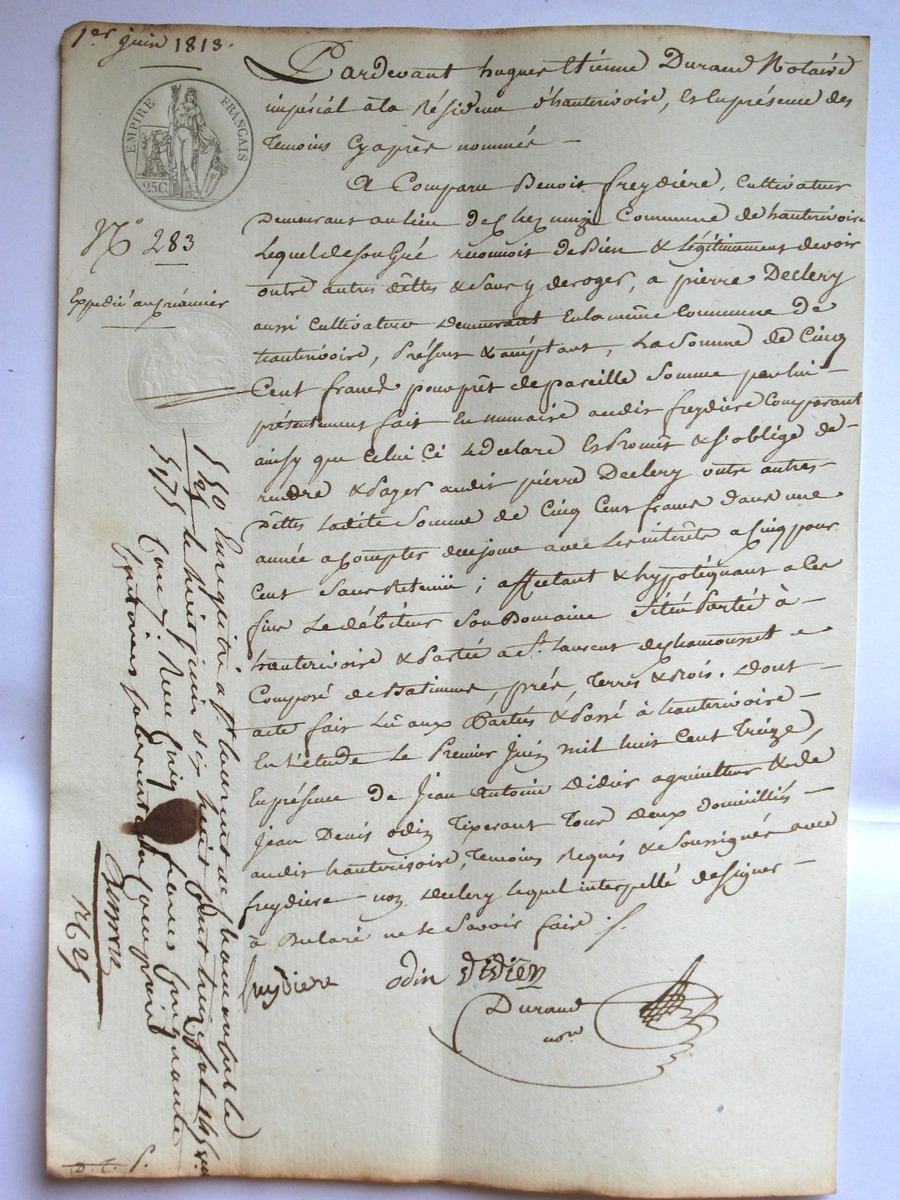 1er juin 1813.
EMPIRE FRANÇAIS
25C.
N° 283
Expedié au créancier
Pardevant hugues Etienne Durand Notaire
impérial àla Résidence d'hauterivoire, Et En présence des
temoins Cy après nommés –
A Comparu Benoit freydière, Cultivateur
Demeurant au lieu de Chez muze Commune de hauterivoire
Lequel de son Gré reconnoit de Bien & légitimement devoir
outre autres dêttes & sans y deroger, a pierre Declery
aussi Cultivateur demeurant En la même Commune de
hauterivoire, Présent & acceptant, La Somme de Cinq
Cent francs pour prêt de pareille Somme par lui –
présentement fait En numaire audit freydière Comparant
ainsy que Celui Ci le declare Et Promêt & s'oblige de –
rendre & Payer audit pierre Declery outre autres –
Dêttes Ladite Somme de Cinq Cent francs dans une
année a Compter de ce jour avec Les intérêts a Cinq pour
Cent Sans Retenue ; affectant & hypotéquant a Ces
fins Le débiteur Son Domaine Situé Partie à –
hauterivoire & Partie a St. Laurent de chamousset
Composé de Batimens, prés, terres & Bois. Dont –
acte fait Lû aux Parties & Passé à hauterivoire –
En L'étude Le Premier Juin mil huit Cent Treize,
En présence de Jean Antoine Didier agriculteur & de
Jean Denis odin Tixerant Tous deux domiciliés –
audit hauterivoire, Temoins Requis & Soussignés avec
freydiere – non Declery lequel interpellé de signer –
à Declaré ne le Savoir faire ./.
freydiere odin didier
Durand
nore
Enregistré a St. laurent de chamousset le
huit juin dix huit cent treize fol. 145
cinq francs cinquante
centimes
D. C. P.